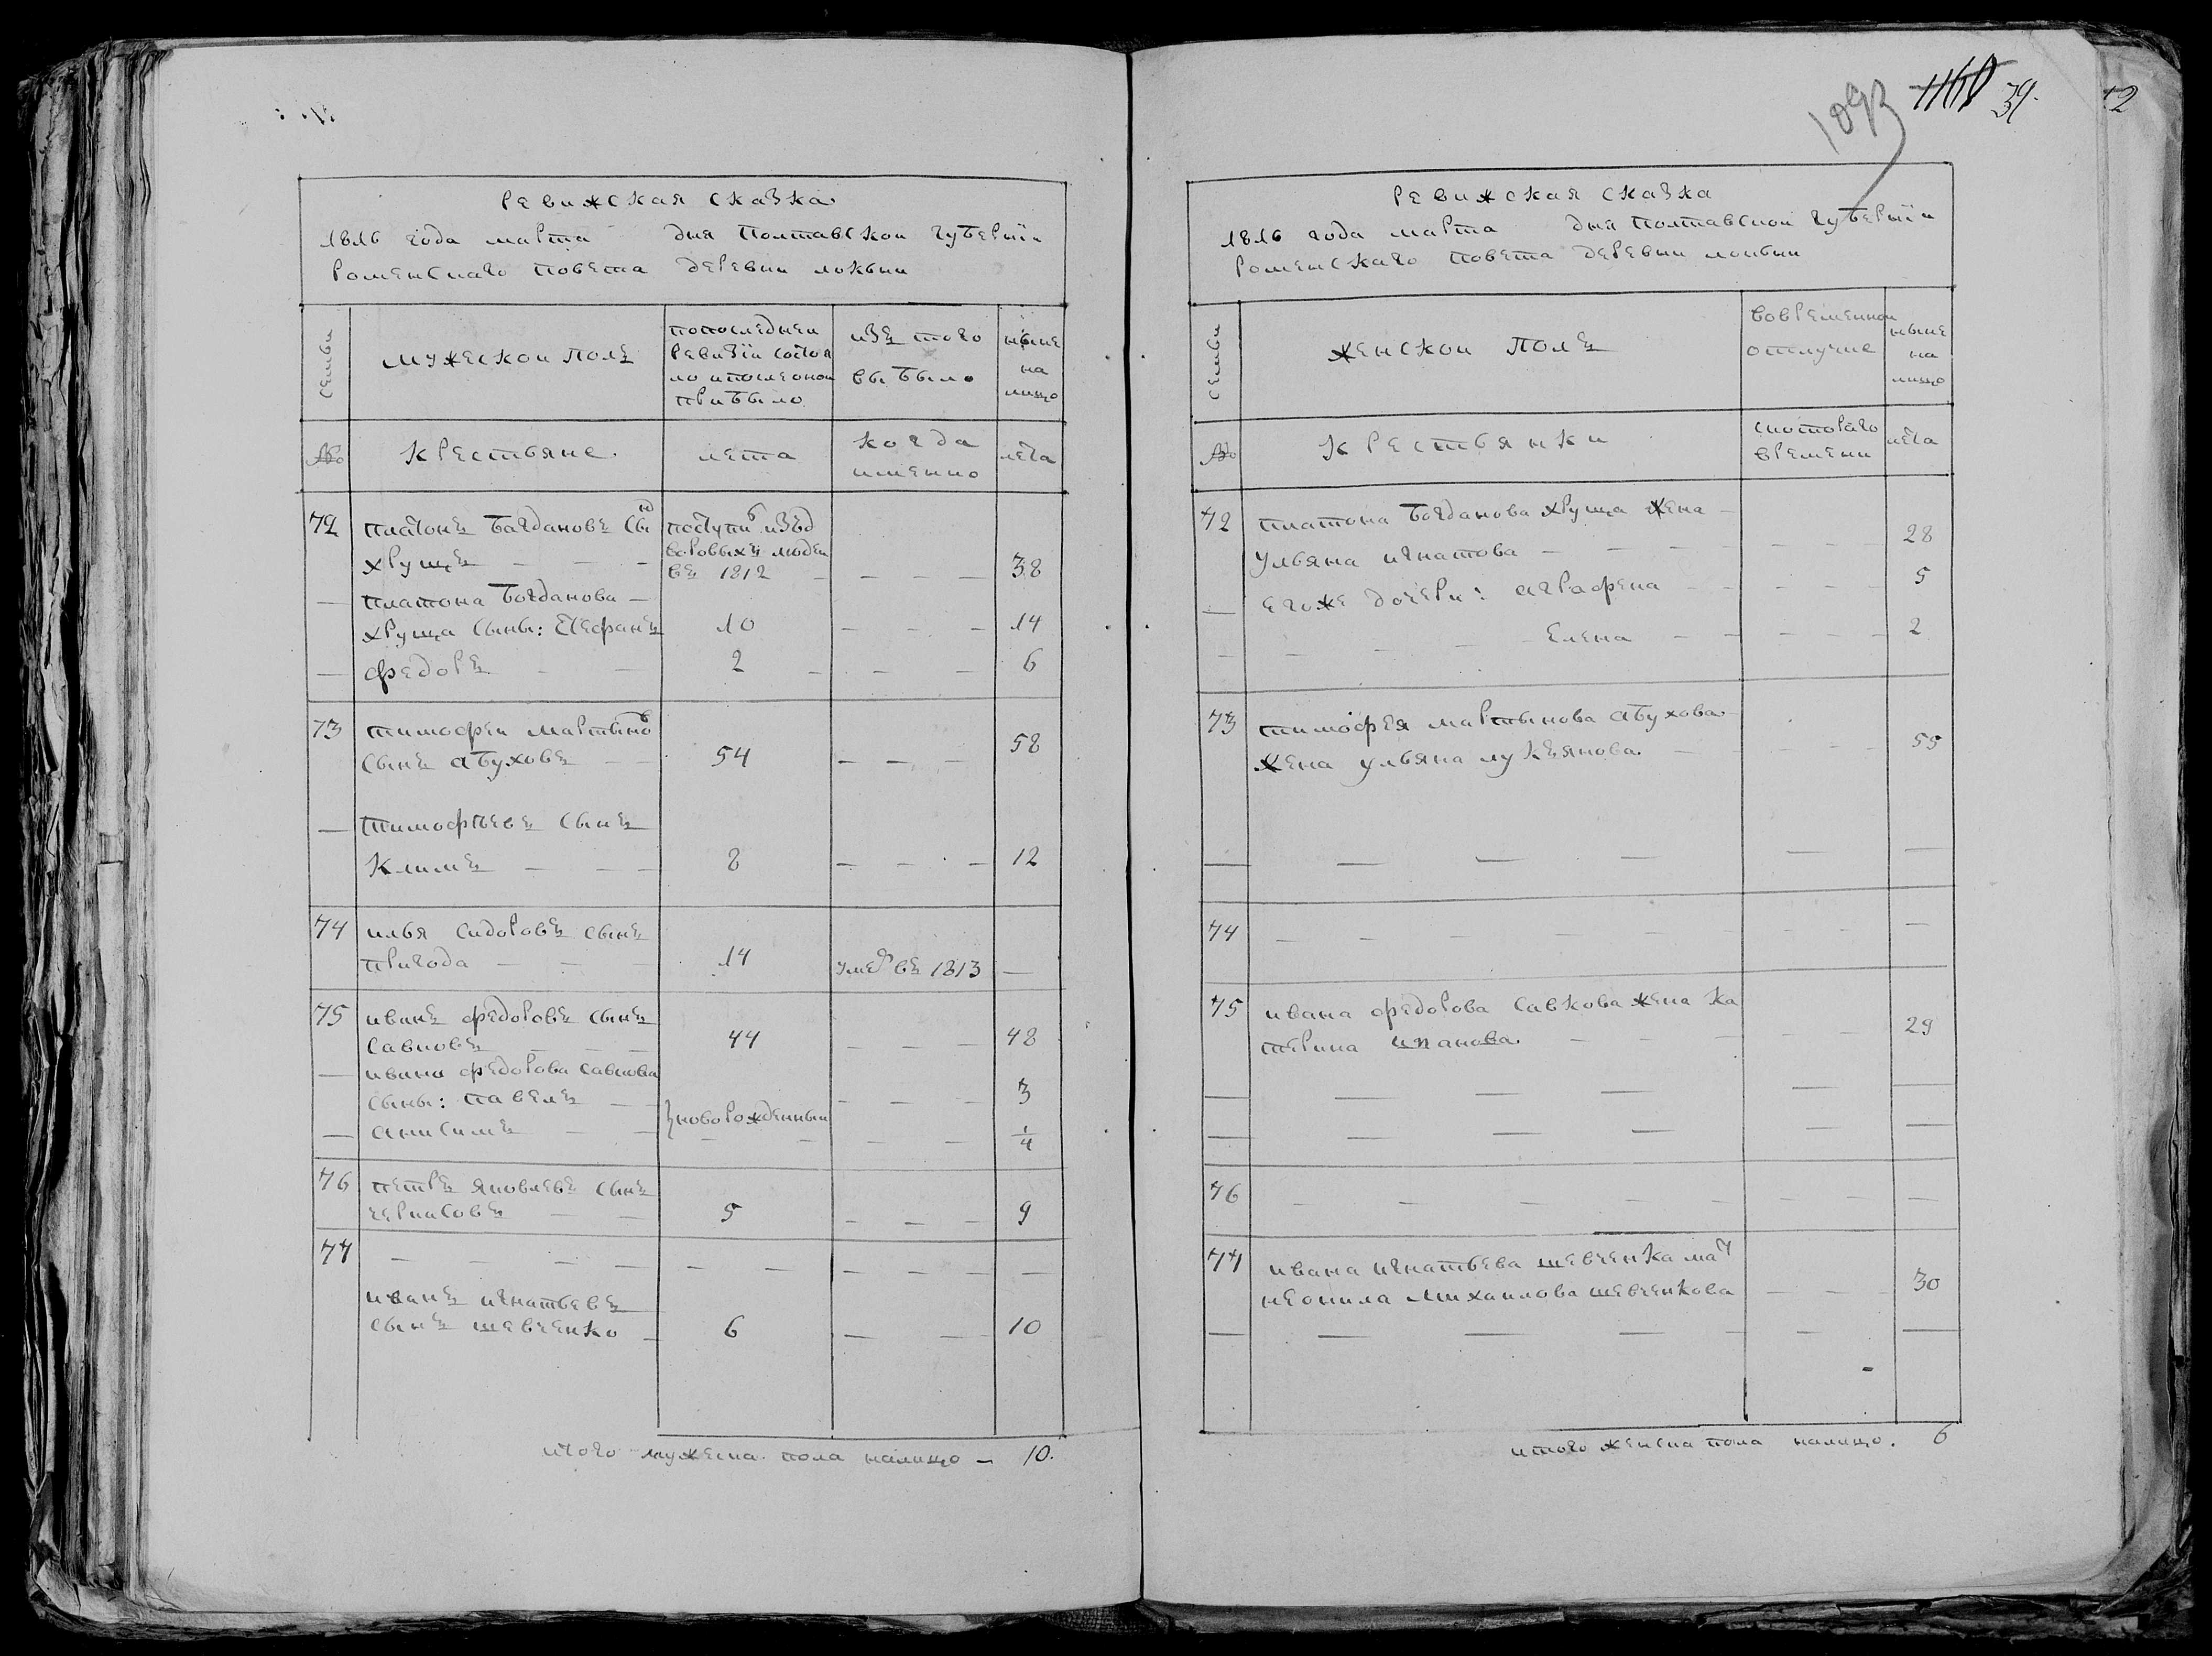 ревижская сказка
1816 года марта дня Полтавской губернїи
роменскаго повета деревни локни
семьи
мужеской полъ
попоследнеи
ревизїи состоя
ло ипослеоной
прибыло
изъ того
выбыло
ныне
на
лицо
№
крестьяне.
лета
когда
именно
лета
72
платонъ багдановъ сын
хрущъ
поступив изъд
воровыхъ людеи
въ 1812
38
платона богданова
хруща сыны: стефанъ 10 14
федоръ 2 6
73
тимофеи мартынов
сынъ абуховъ 54 58
тимофѣевъ сынъ
климъ 8 12
74
илья сидоровъ сынъ
пригода 14 умер въ 1813
75
иванъ федоровъ сынъ
савковъ 44 48
ивана федорова савкова
сыны: павелъ 3
анисимъ новорожденныи 1/4
76
петръ яковлевъ сынъ
черниковъ 5 9
77
иванъ игнатьевъ
сынъ шевченко 6 10
итого мужеска пола налицо 10.
1093 1160 39. 42
ревижская сказка
1816 года марта дня Полтавской губернїи
роменскаго повета деревни локни
семьи
женской полъ
вовременной
отлучке
ныне
на
лицо
№
крестьянки
скотораго
времени
лета
72
платона богданова хруща жена
ульяна игнатова 28
егоже дочери: аграфена 5
елена 2
73
тимофея мартынова абухова
жена ульяна лукъянова. 55
74
75
ивана федорова савкова жена ка
терина ипанова. 29
76
77
ивана игнатьева шевченка мат
неонила михаилова шевченкова 30
итого женска пола налицо. 6